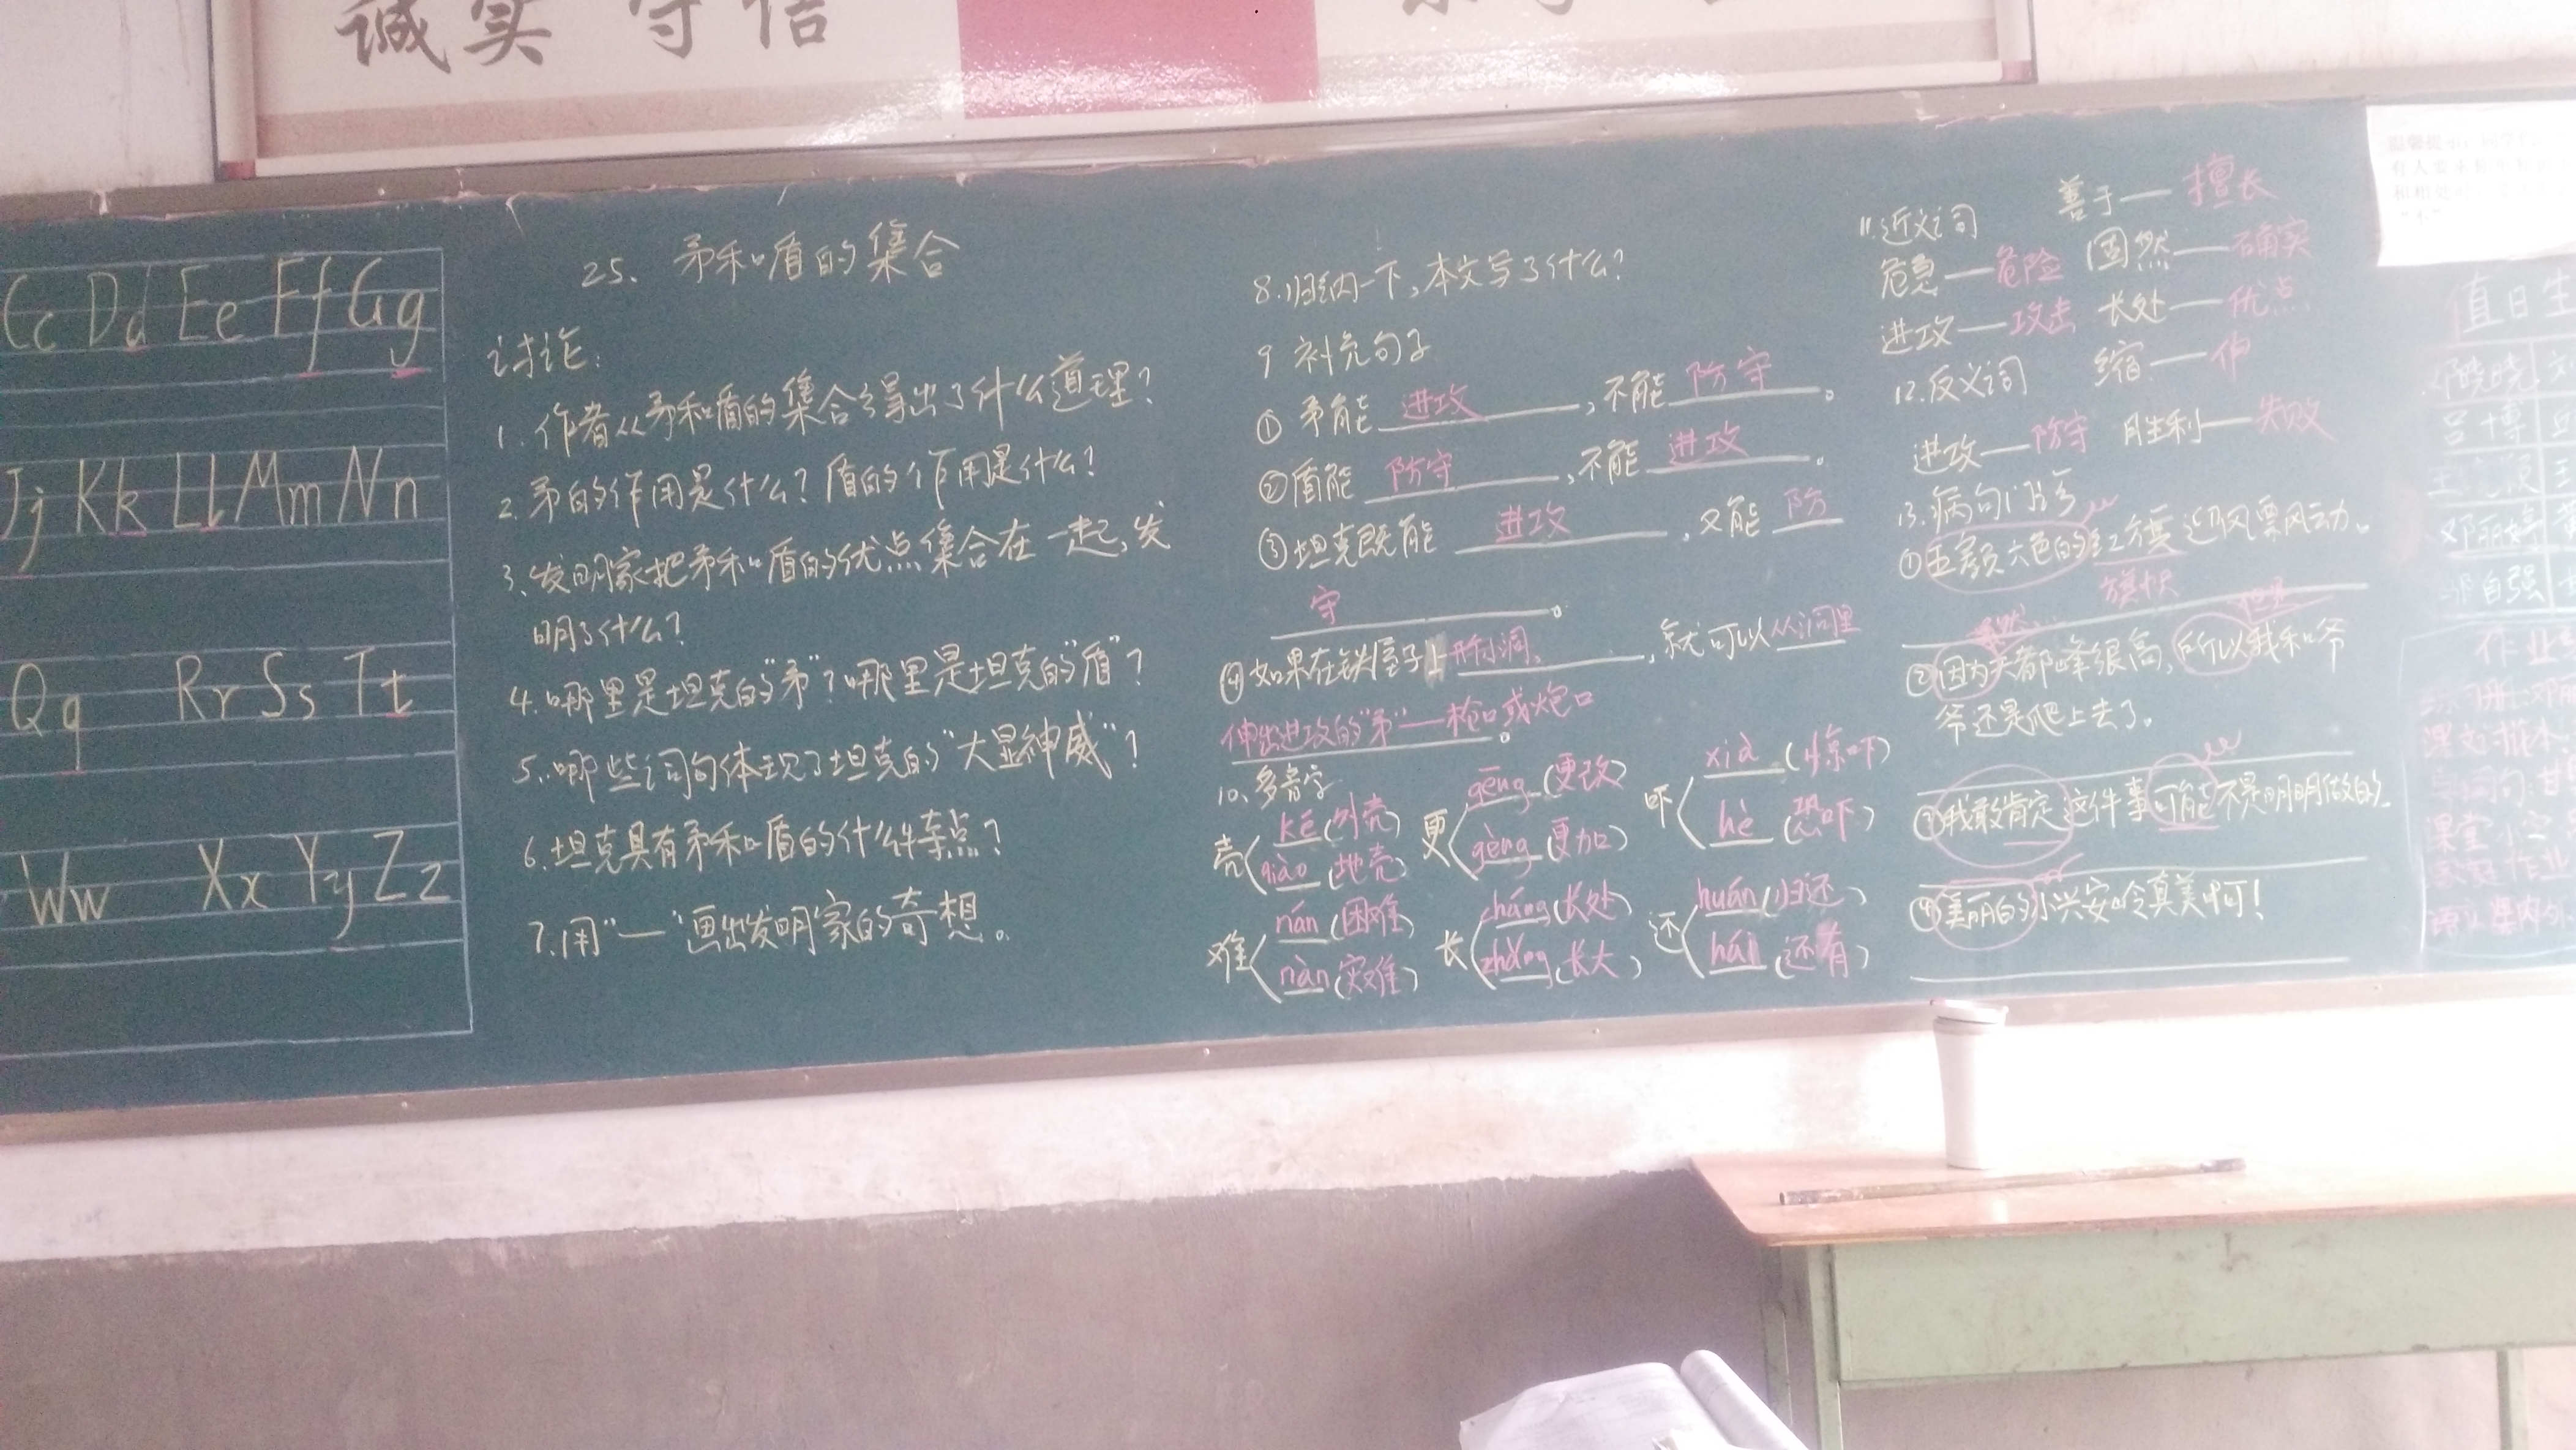 诚实 守信
Cc Dd Ee Ff Gg
Jj Kk Ll Mm Nn
Qq Rr Ss Tt
Ww Xx Yy Zz
25、矛和盾的集合
讨论:
1.作者从矛和盾的集合得出了什么道理?
2.矛的作用是什么?盾的作用是什么?
3.发明家把矛和盾的优点集合在一起,发
明了什么?
4.哪里是坦克的“矛”?哪里是坦克的“盾”?
5.哪些词句体现了坦克的“大显神威”?
6.坦克具有矛和盾的什么特点?
7.用“一”画出发明家的奇想。
8.归纳一下,本文写了什么?
9 补充句子
①矛能 进攻 ,不能 防守 。
②盾能 防守 ,不能 进攻 。
③坦克既能 进攻 ,又能 防
守 。
④如果在铁屋子上开个小洞, ,就可以从洞里
伸出进攻的“矛”—枪口或炮口 。
10、多音字
壳 ké (外壳) qiào (地壳)
更 gēng (更改) gèng (更加)
吓 xià (惊吓) hè (恐吓)
难 nán (困难) nàn (灾难)
长 cháng (长处) zhǎng (长大)
还 huán (归还) hái (还有)
11.近义词 善于—擅长
危急—危险 固然—确实
进攻—攻击 长处—优点
12.反义词 缩—伸
进攻—防守 胜利—失败
13.病句门诊
①五颜六色的红旗迎风飘动。
旗帜
虽然 但是
②因为天都峰很高,所以我和爷
爷还是爬上去了。
③我敢肯定这件事可能不是明明做的。
④美丽的小兴安岭真美啊!
温馨提示:同学们
值日生
邓晓晓
吕博
邓丽婷
自强
作业
课堂